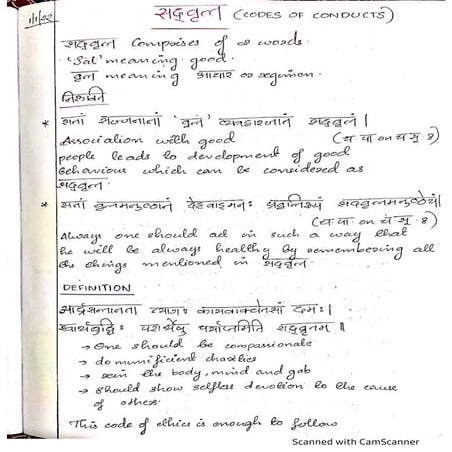 1/1/22
सद्‌वृत्त (CODES OF CONDUCTS)
सद्‌वृत्त Comprises of 2 words.
'Sat' meaning good.
वृत्त meaning आचार or regimen.
निरुक्ति
* सतां सज्जनानां 'वृत्तं' व्यवहारजातं सद्‌वृत्तं |
Association with good (च पा on च सू 8)
people leads to development of good
Behaviour which can be considered as
सद्‌वृत्त.
* सतां वृत्तमनुष्ठानं देहवाङमनः प्रवृत्तिरूपं सद्‌वृत्तमनुष्ठेयं |
(च पा on च सू. 8)
Always one should act in such a way that
he will be always healthy by remembering all
the things mentioned in सद्‌वृत्त.
DEFINITION
आर्द्रसन्तानता त्यागः कायवाक्चेतसां दमः |
स्वार्थबुद्धिः परार्थेषु पर्याप्तमिति सद्‌वृत्तम् ||
→ One should be compassionate
→ do munificient charities
→ rein the body, mind and gab
→ Should show selfless devotion to the cause
of others.
This code of ethics is enough to follow
Scanned with CamScanner